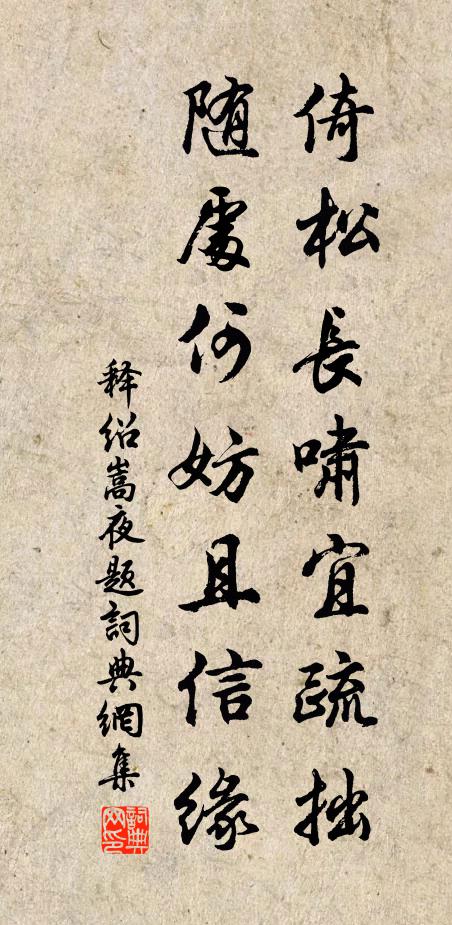 倚松長嘯宜疏拙
随處何妨且信緣
释绍嵩夜题詞典網集
詞典网印